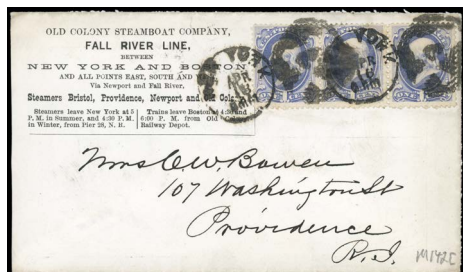 OLD COLONY STEAMBOAT COMPANY,
FALL RIVER LINE,
BETWEEN
NEW YORK AND BOSTON
AND ALL POINTS EAST, SOUTH AND
Via Newport and Fall River,
Steamers Bristol, Providence, Newport and Old Colony
Steamers leave New York at 5
P. M. in Summer, and 4:30 P. M.
in Winter, from Pier 28, N. R.
Trains leave Boston at 4:30 and
6:00 P. M. from Old Colony
Railway Depot.
YORK
APR
YORK
Mrs C. W. Bowen
107 Washington St
Providence
R. I.
M142E